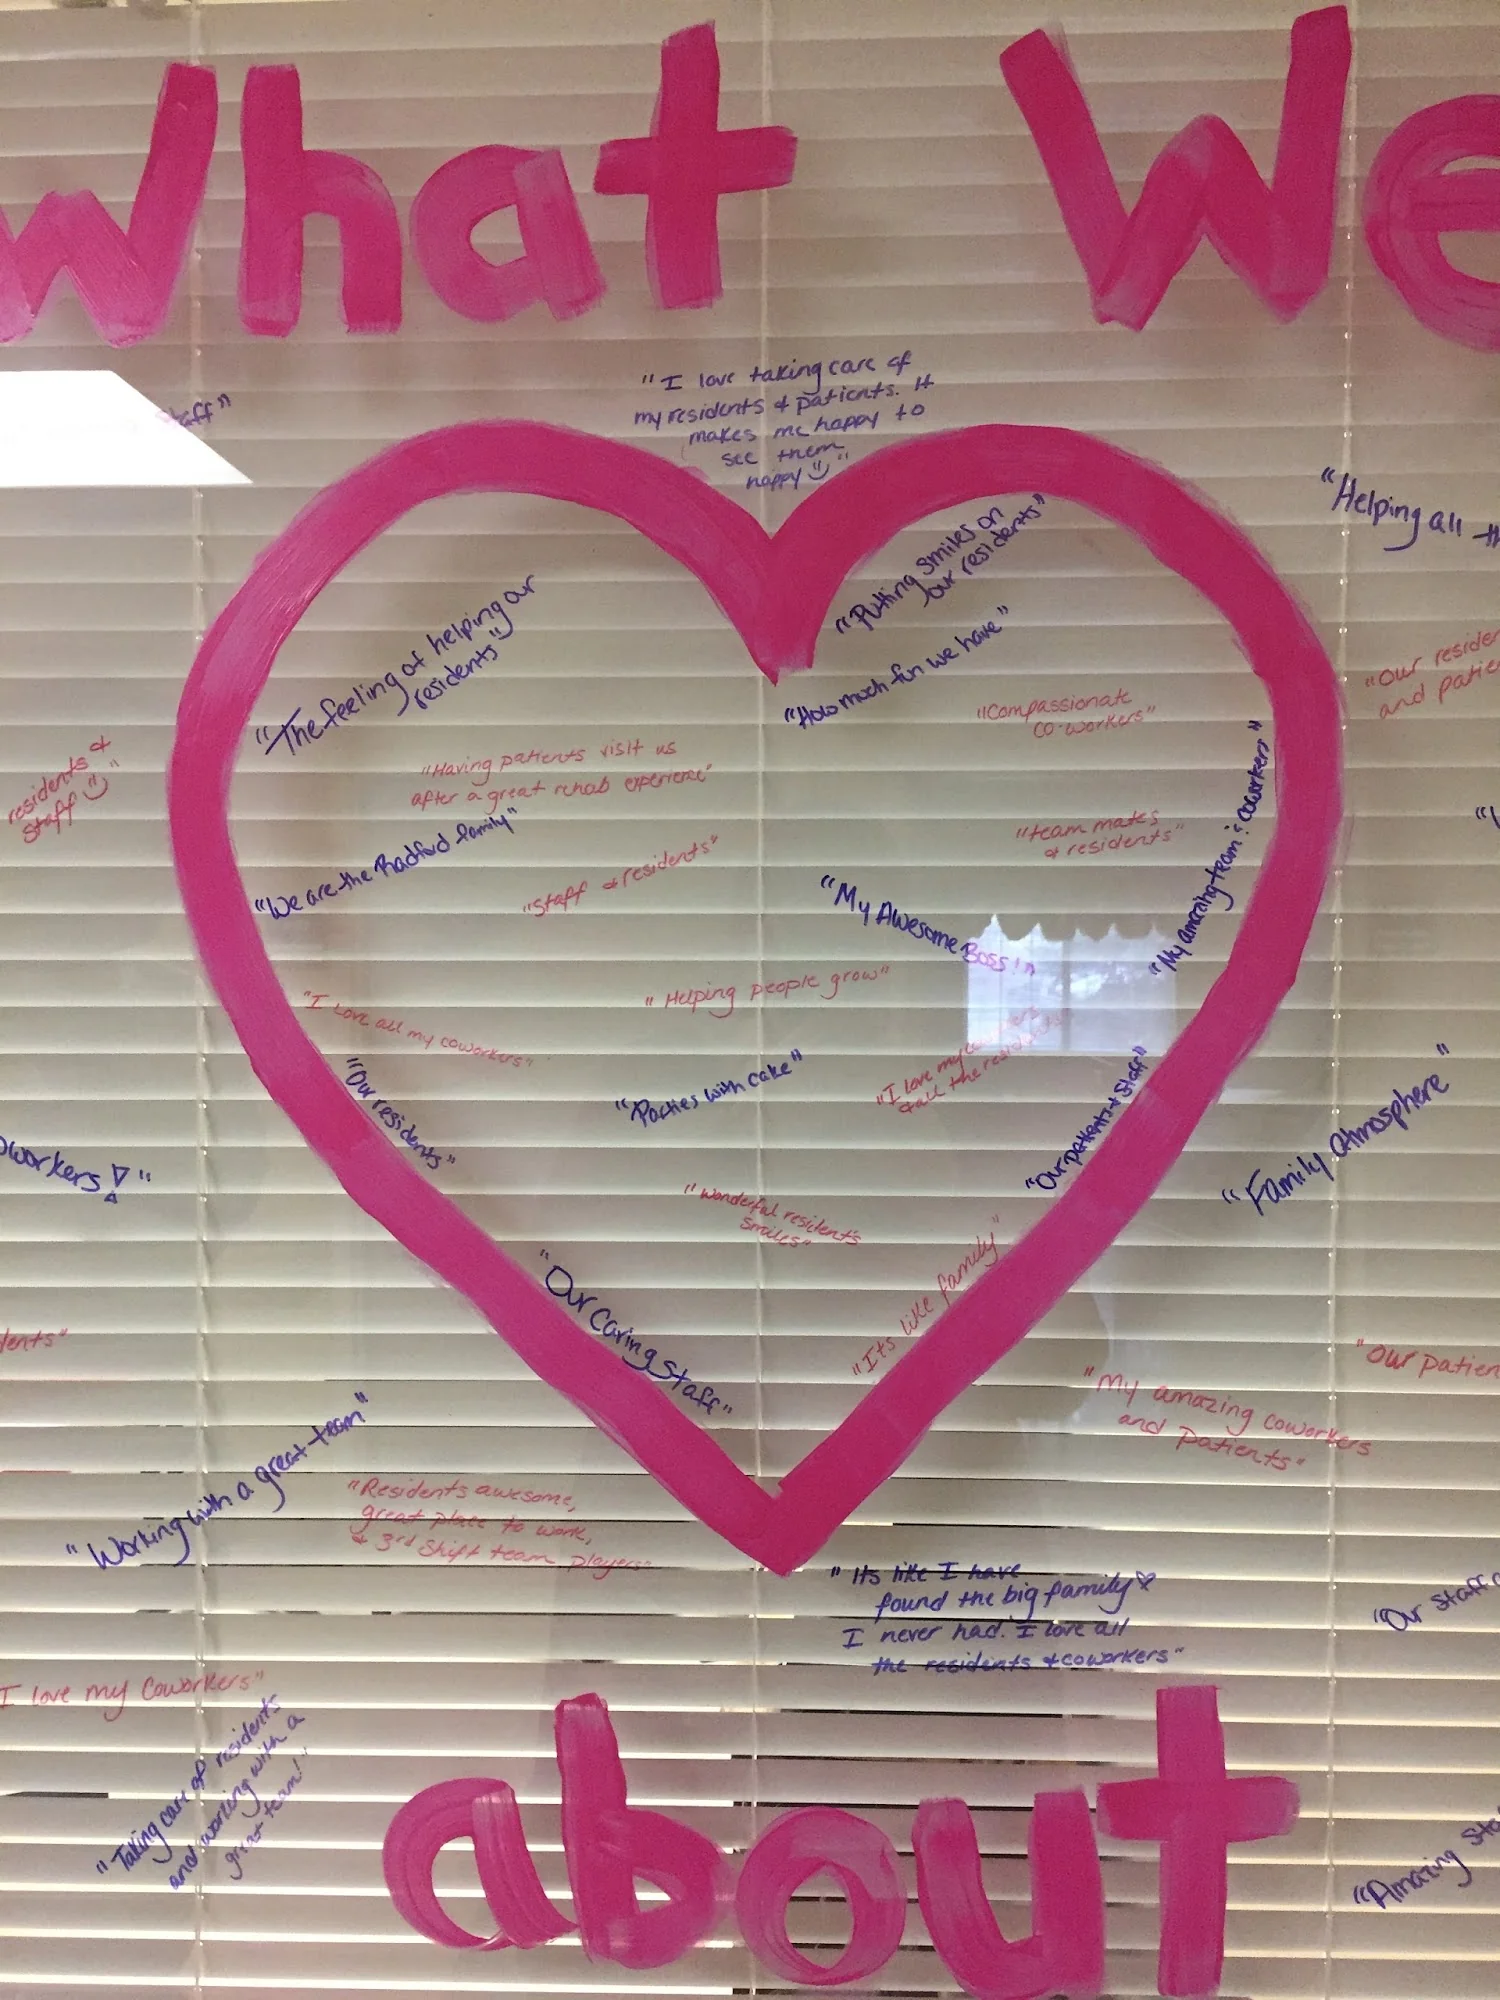 What We
"I love taking care of
my residents & patients. It
makes me happy to
see them
happy
staff"
"Helping all
"Putting smiles on
our residents"
"The feeling of helping our
residents"
"How much fun we have"
"Compassionate
co-workers"
"Our
and
residents &
staff
"Having patients visit us
after a great rehab experience"
"My amazing team & coworkers"
"team mates
& residents"
"We are the Radford family"
"Staff & residents"
"My Awesome Boss!"
"Helping people grow"
"I Love all my coworkers"
"I love my coworkers
& all the residents"
"Our residents"
"Parties with cake"
"Our patients & staff"
"Family atmosphere"
"Wonderful residents
smiles"
"Our Caring Staff"
"Its like family"
"Our
"My amazing coworkers
and patients"
"Working with a great team"
"Residents awesome,
great place to work,
& 3rd shift team players"
"Its like I have
found the big family
I never had. I love all
the residents & coworkers"
"Our Staff
I love my Coworkers"
"Taking care of residents
and working with a
great team!"
"Amazing
about